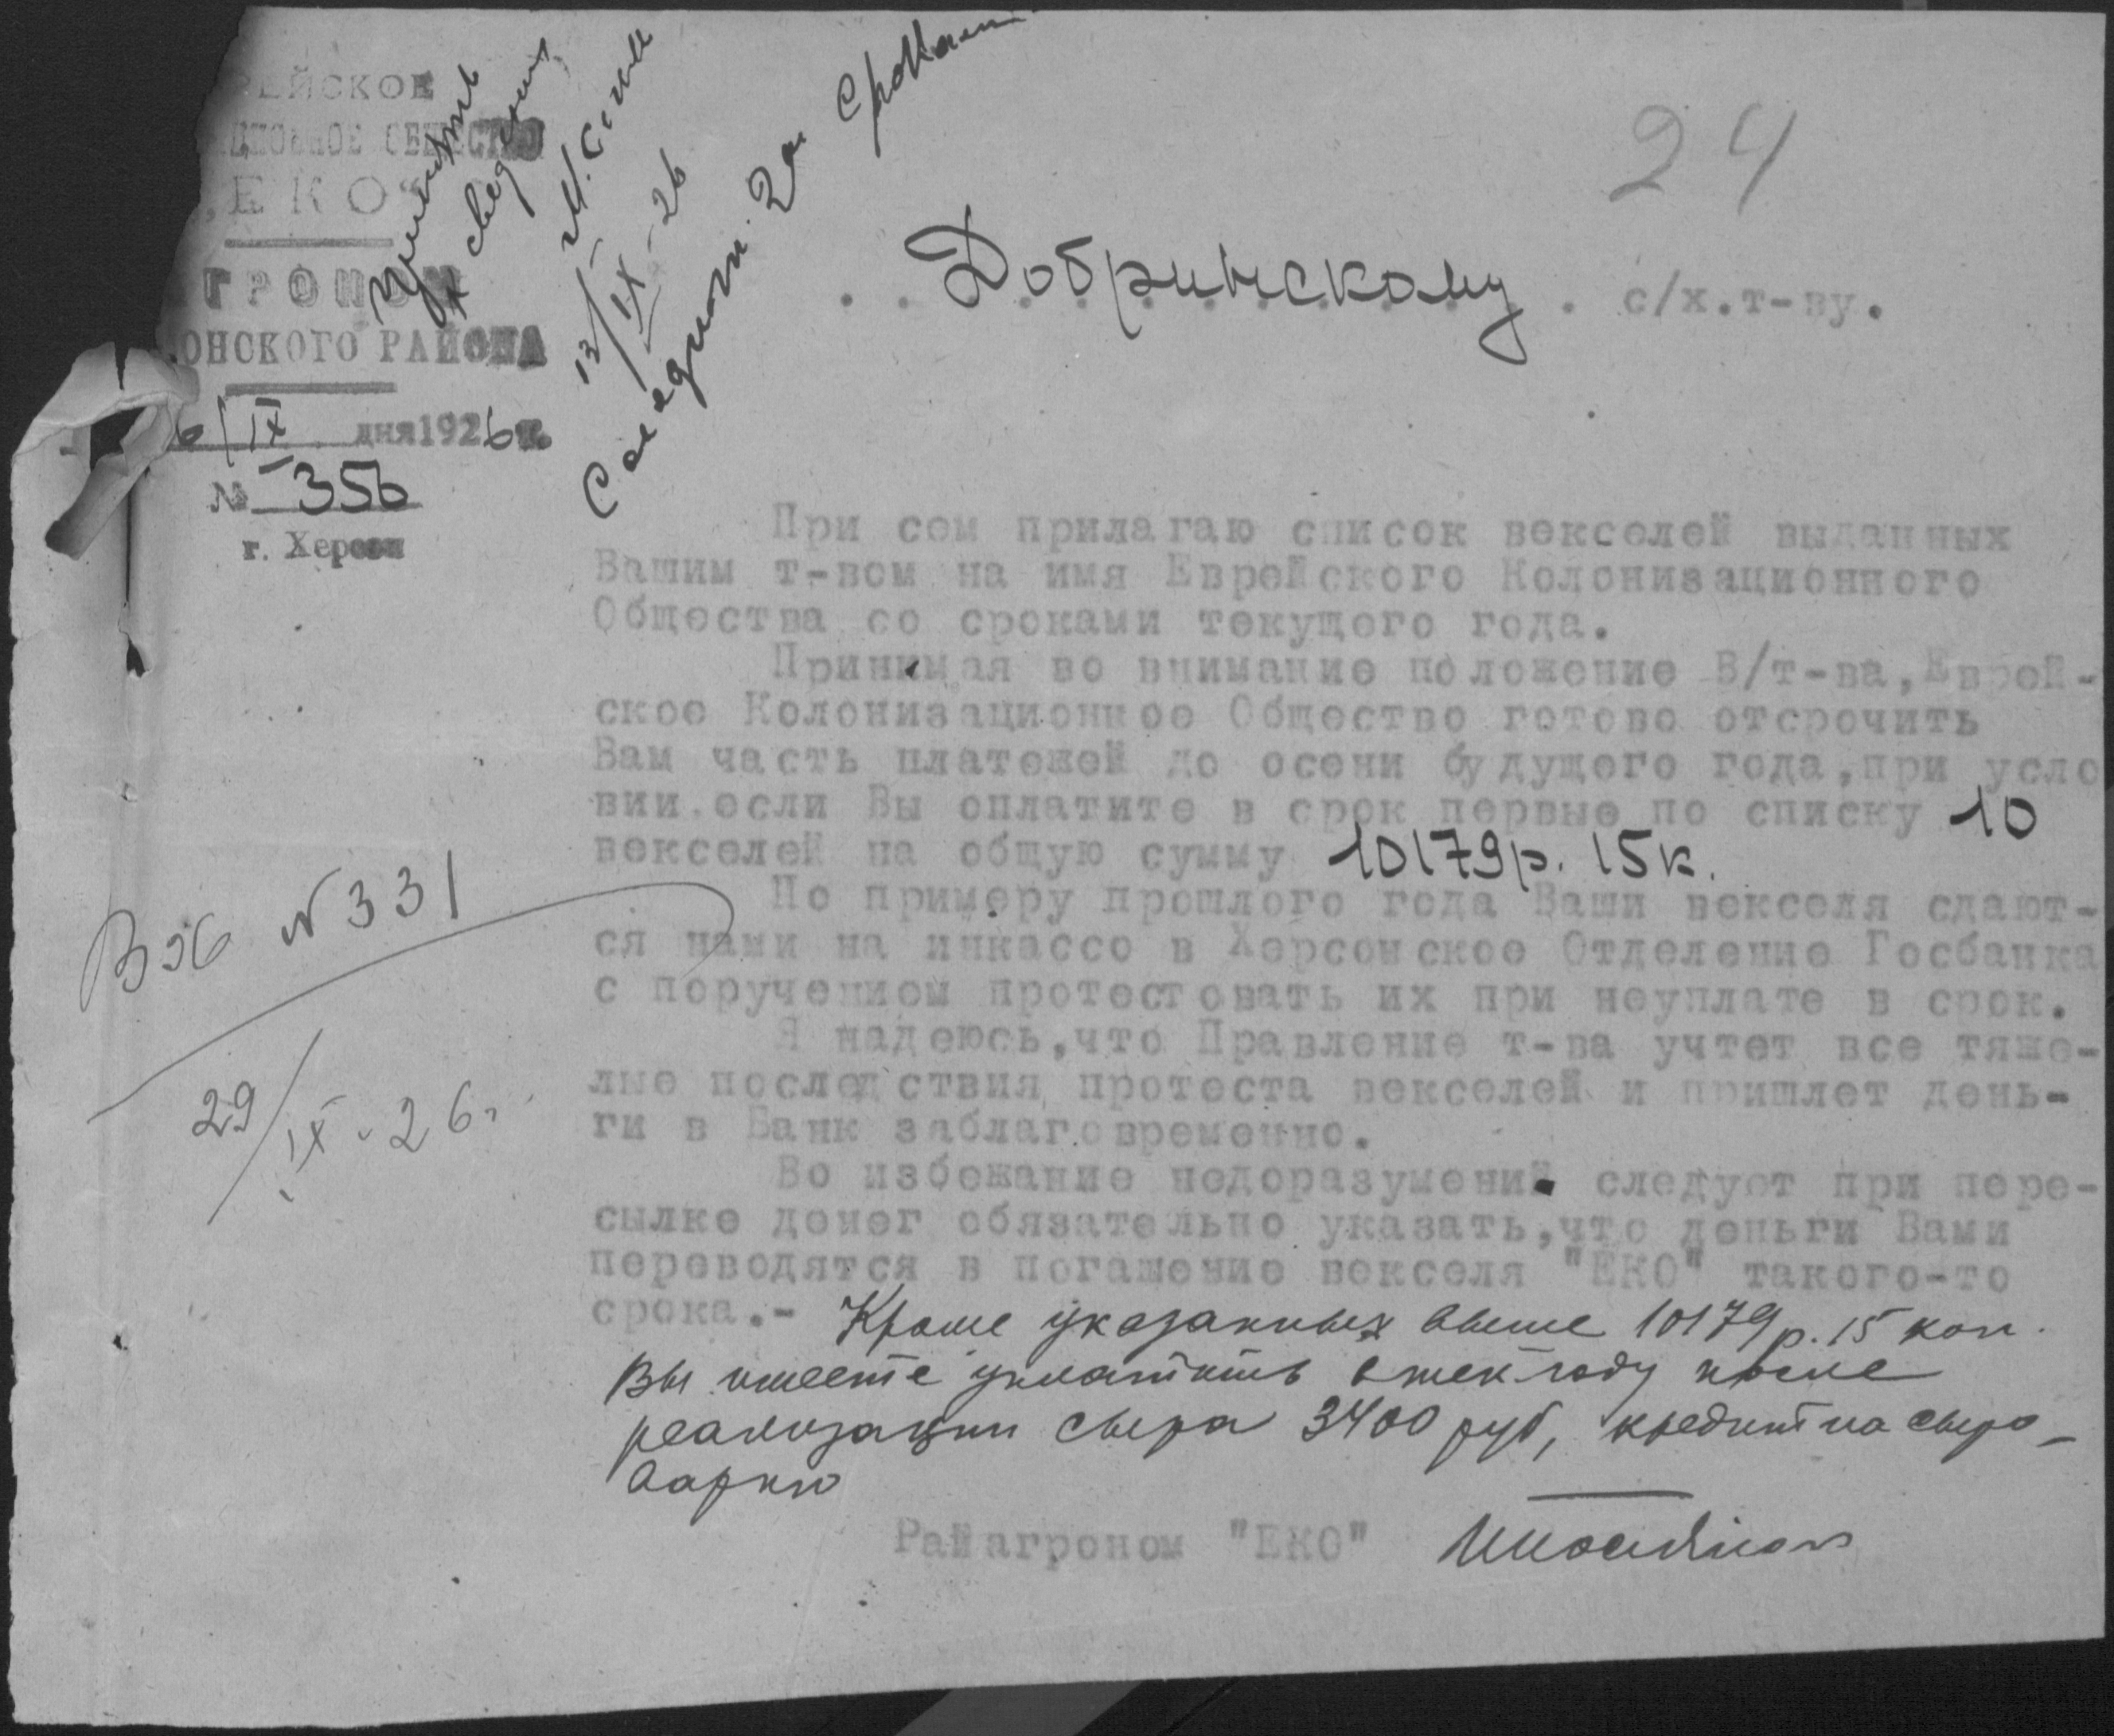 ЕЙСКОЕ
ЦИОННОЕ ОБЩЕСТВО
„ЕКО“
ГРОНОМ
ОНСКОГО РАЙОНА
6/IX дня 1926 г.
№ 356
г. Херсон
Принять
к сведению
13/IX-26
Следить за сроками
24
Добринскому с/х.т-ву.
При сем прилагаю список векселей выданных
Вашим т-вом на имя Еврейского Колонизационного
Общества со сроками текущего года.
Принимая во внимание положение В/т-ва, Еврей-
ское Колонизационное Общество готово отсрочить
Вам часть платежей до осени будущего года, при усло
вии.если Вы оплатите в срок первые по списку 10
векселей на общую сумму 10179р. 15к.
По примеру прошлого года Ваши векселя сдают-
ся нами на инкассо в Херсонское Отделение Госбанка
с поручением протестовать их при неуплате в срок.
Я надеюсь,что Правление т-ва учтет все тяже-
лые последствия протеста векселей и пришлет день-
ги в Банк заблаговременно.
Во избежание недоразумений следует при пере-
сылке денег обязательно указать,что деньги Вами
переводятся в погашение векселя "ЕКО" такого-то
срока.- Кроме указанных выше 10179 р. 15 коп.
Вы имеете уплатить в тек году после
реализации сыра 3400 руб, кредит на сыро-
варню
Райагроном "ЕКО"
Вх N 331
29/IX-26г.